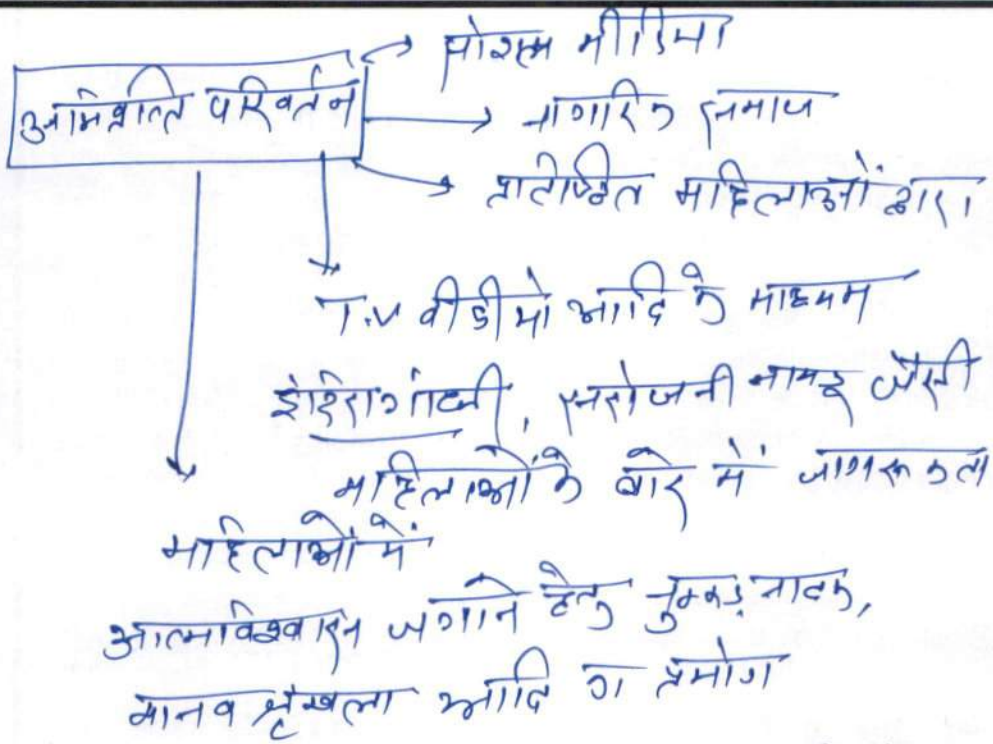 सोशल मीडिया
अभिवृत्ति परिवर्तन
नागरिक समाज
प्रतिष्ठित महिलाओं द्वारा
T.V वीडीयो आदि के माध्यम
इंदिरा गांधी, सरोजनी नायडू जैसी
महिलाओं के बारे में जागरूकता
महिलाओं में
आत्मविश्वास जगाने हेतु नुक्कड़ नाटक,
मानव श्रृंखला आदि का प्रयोग